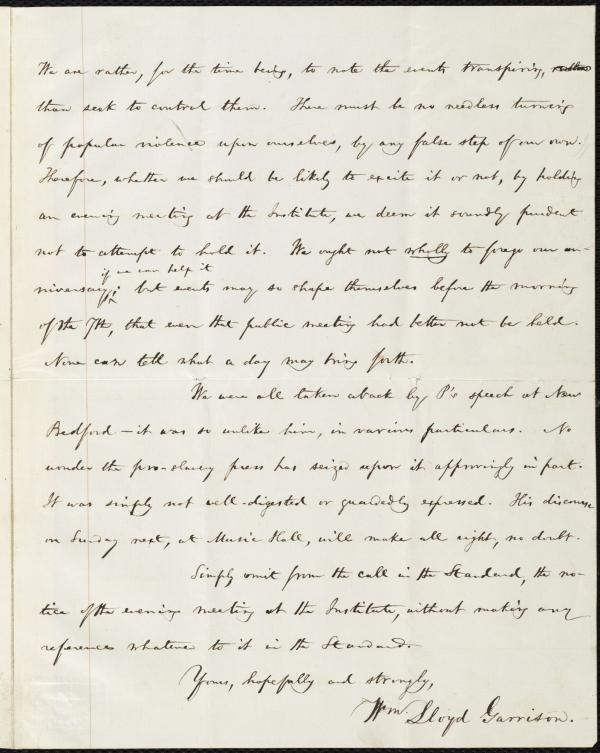 We are rather, for the time being, to note the events transpiring,
than seek to control them. There must be no needless turning
of popular violence upon ourselves, by any false step of our own.
Therefore, whether we should be likely to excite it or not, by holding
an evening meeting at the Institute, we deem it soundly prudent
not to attempt to hold it. We ought not wholly to forego our an-
if we can help it
niversary; but events may so shape themselves before the morning
of the 7th, that even that public meeting had better not be held.
None can tell what a day may bring forth.
We were all taken aback by P's speech at New
Bedford — it was so unlike him, in various particulars. No
wonder the pro-slavery press has seized upon it approvingly in part.
It was simply not well-digested or guardedly expressed. His discourse
on Sunday next, at Music Hall, will make all right, no doubt.
Simply omit from the call in the Standard, the no-
tice of the evening meeting at the Institute, without making any
reference whatever to it in the Standard.
Yours, hopefully and strongly,
Wm. Lloyd Garrison.